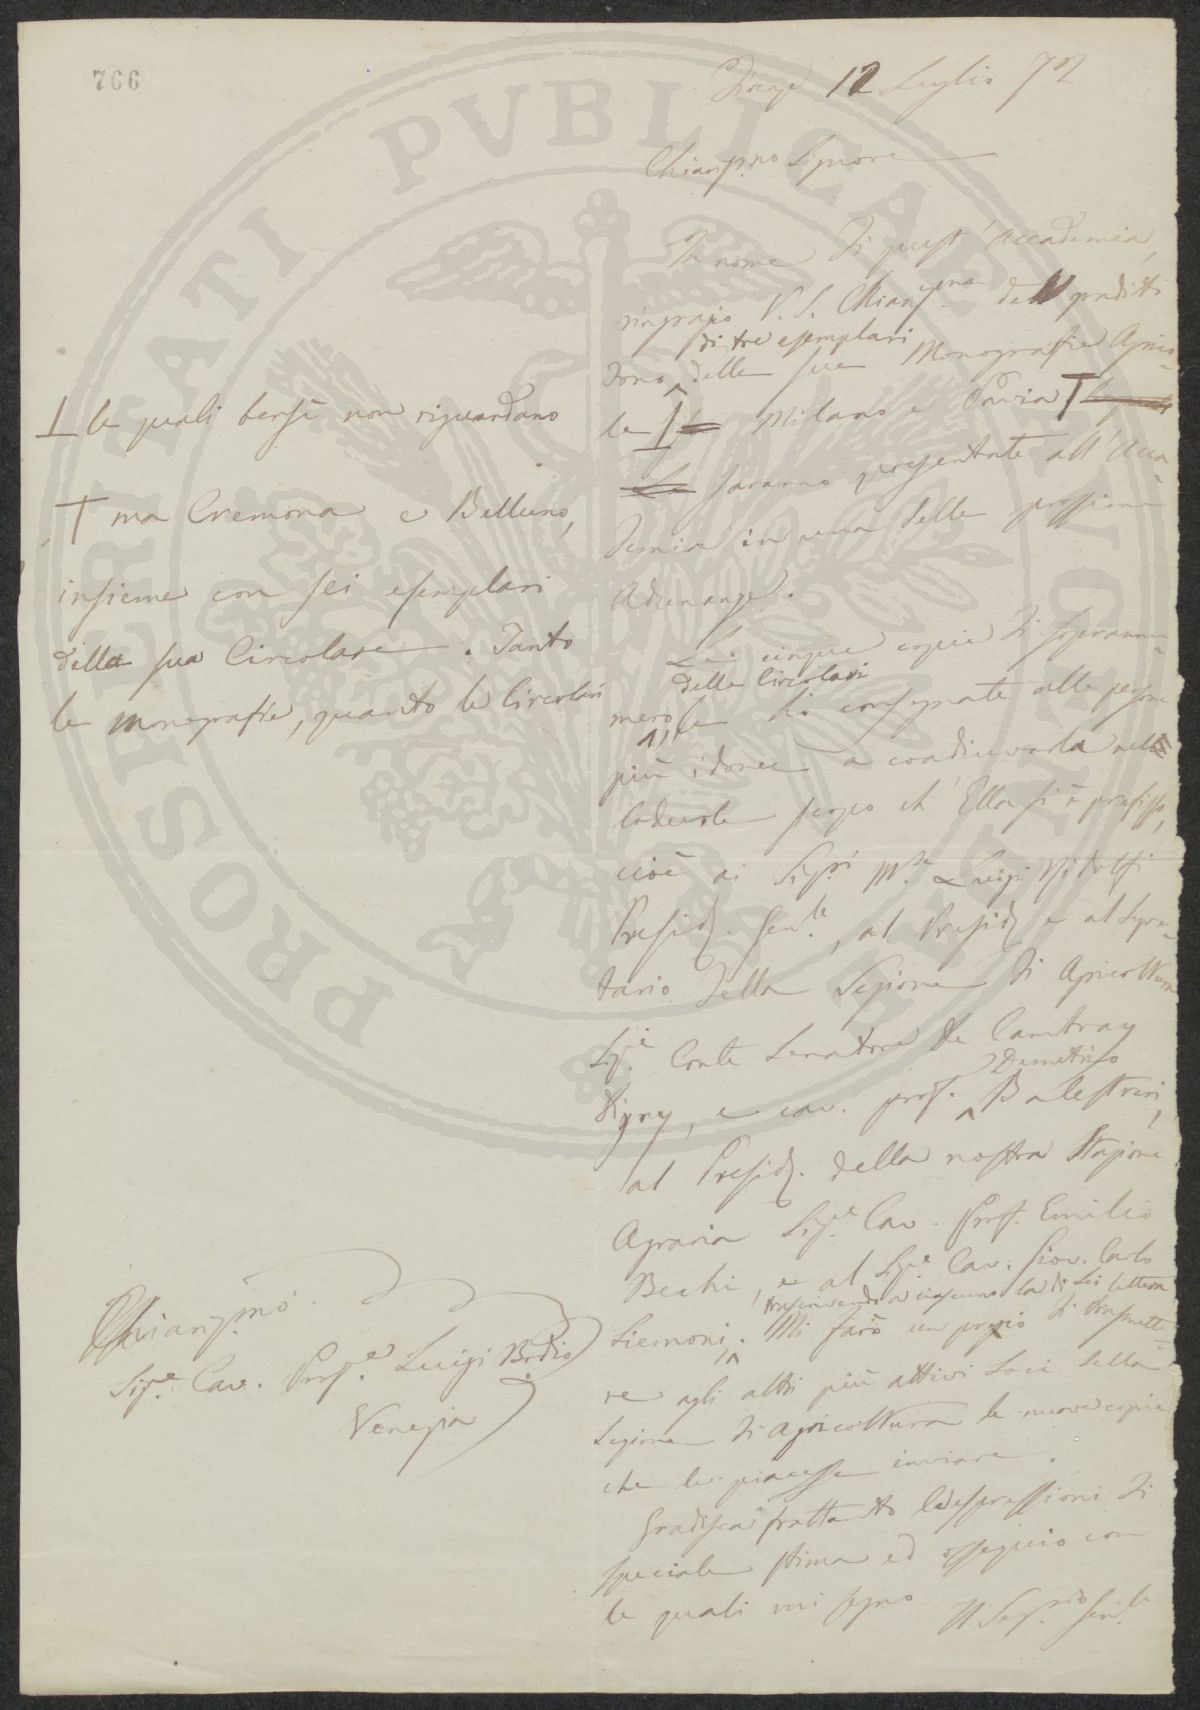 766
12 Luglio 72
Chiariss.mo Signore
In nome di quest'Accademia,
ringrazio V. S. Chiariss.ma dell gradito
di tre esemplari
dono delle sue Monografie Agrico-
le Milano e Pavia T
saranno presentate all'Acca-
demia in una delle prossime
Adunanze.
Le cinque copie di soprannu-
delle Circolari
mero, le ho consegnate alle persone
più idonee a coadiuvarla nel
lodevole scopo ch'Ella si è prefisso,
cioè ai Sigg.ri M.se Luigi Ridolfi
Presid. Gen.le, al Presid. e al Segre-
tario della Sezione di Agricoltura
Sig.e Conte Senatore De Cambray
Demetrio
Digny, e cav. prof. Balestreri,
al Presid. della nostra Stazione
Agraria Sig.e Cav. Prof. Emilio
Bechi, e al Sig.e Cav. Giov. Carlo
trascrivendo a ciascuno la di Lei lettera
Siemoni. Mi farò un pregio di trasmette-
re agli altri più attivi Soci della
Sezione di Agricoltura le nuove copie
che le piacesse inviare.
Gradisca frattanto le espressioni di
speciale stima ed ossequio con
le quali mi segno
Il Seg.rio Gen.le
⊥ le quali bensì non riguardano
T ma Cremona e Belluno,
insieme con sei esemplari
della sua Circolare. Tanto
le Monografie, quanto le Circolari
Chiariss.mo
Sig.e Cav. Prof.e Luigi Bodio
Venezia
PROSPERITATI PVBLICAE AVGENDAE